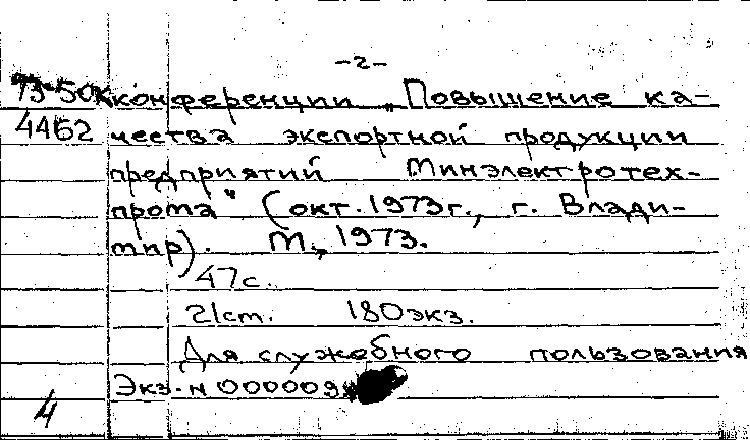 -2-
73-50К конференции „Повышение ка-
4462 чества экспортной продукции
предприятий Минэлектротех-
прома" (окт. 1973г., г. Влади-
мир). М., 1973.
47с.
21ст. 180экз.
Для служебного пользования
Экз. н 000009
4